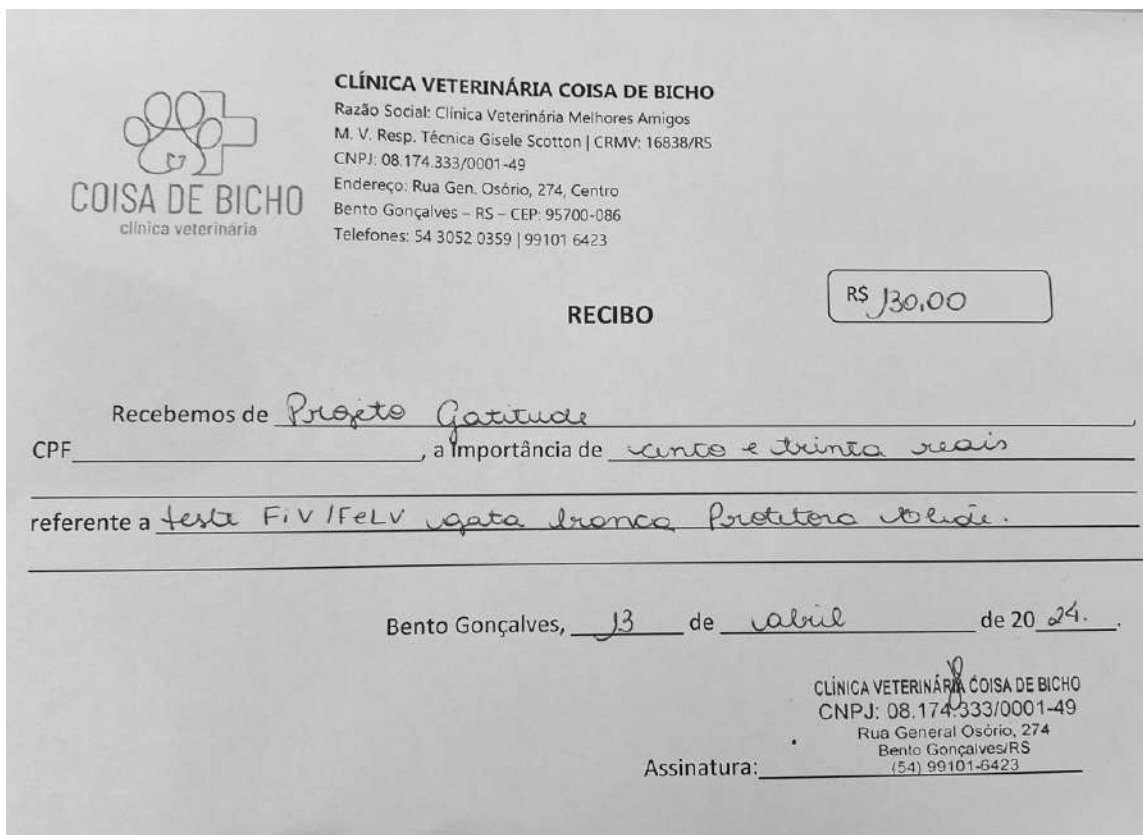 COISA DE BICHO
clínica veterinária
CLÍNICA VETERINÁRIA COISA DE BICHO
Razão Social: Clínica Veterinária Melhores Amigos
M. V. Resp. Técnica Gisele Scotton | CRMV: 16838/RS
CNPJ: 08.174.333/0001-49
Endereço: Rua Gen. Osório, 274, Centro
Bento Gonçalves – RS – CEP: 95700-086
Telefones: 54 3052 0359 | 99101 6423
RECIBO
R$ 130,00
Recebemos de Projeto Gatitude,
CPF, a importância de cento e trinta reais
referente a teste FiV/FeLV gata branca Protetora
Bento Gonçalves, 13 de abril de 2024.
CLÍNICA VETERINÁRIA COISA DE BICHO
CNPJ: 08.174.333/0001-49
Rua General Osório, 274
Bento Gonçalves/RS
(54) 99101-6423
Assinatura: